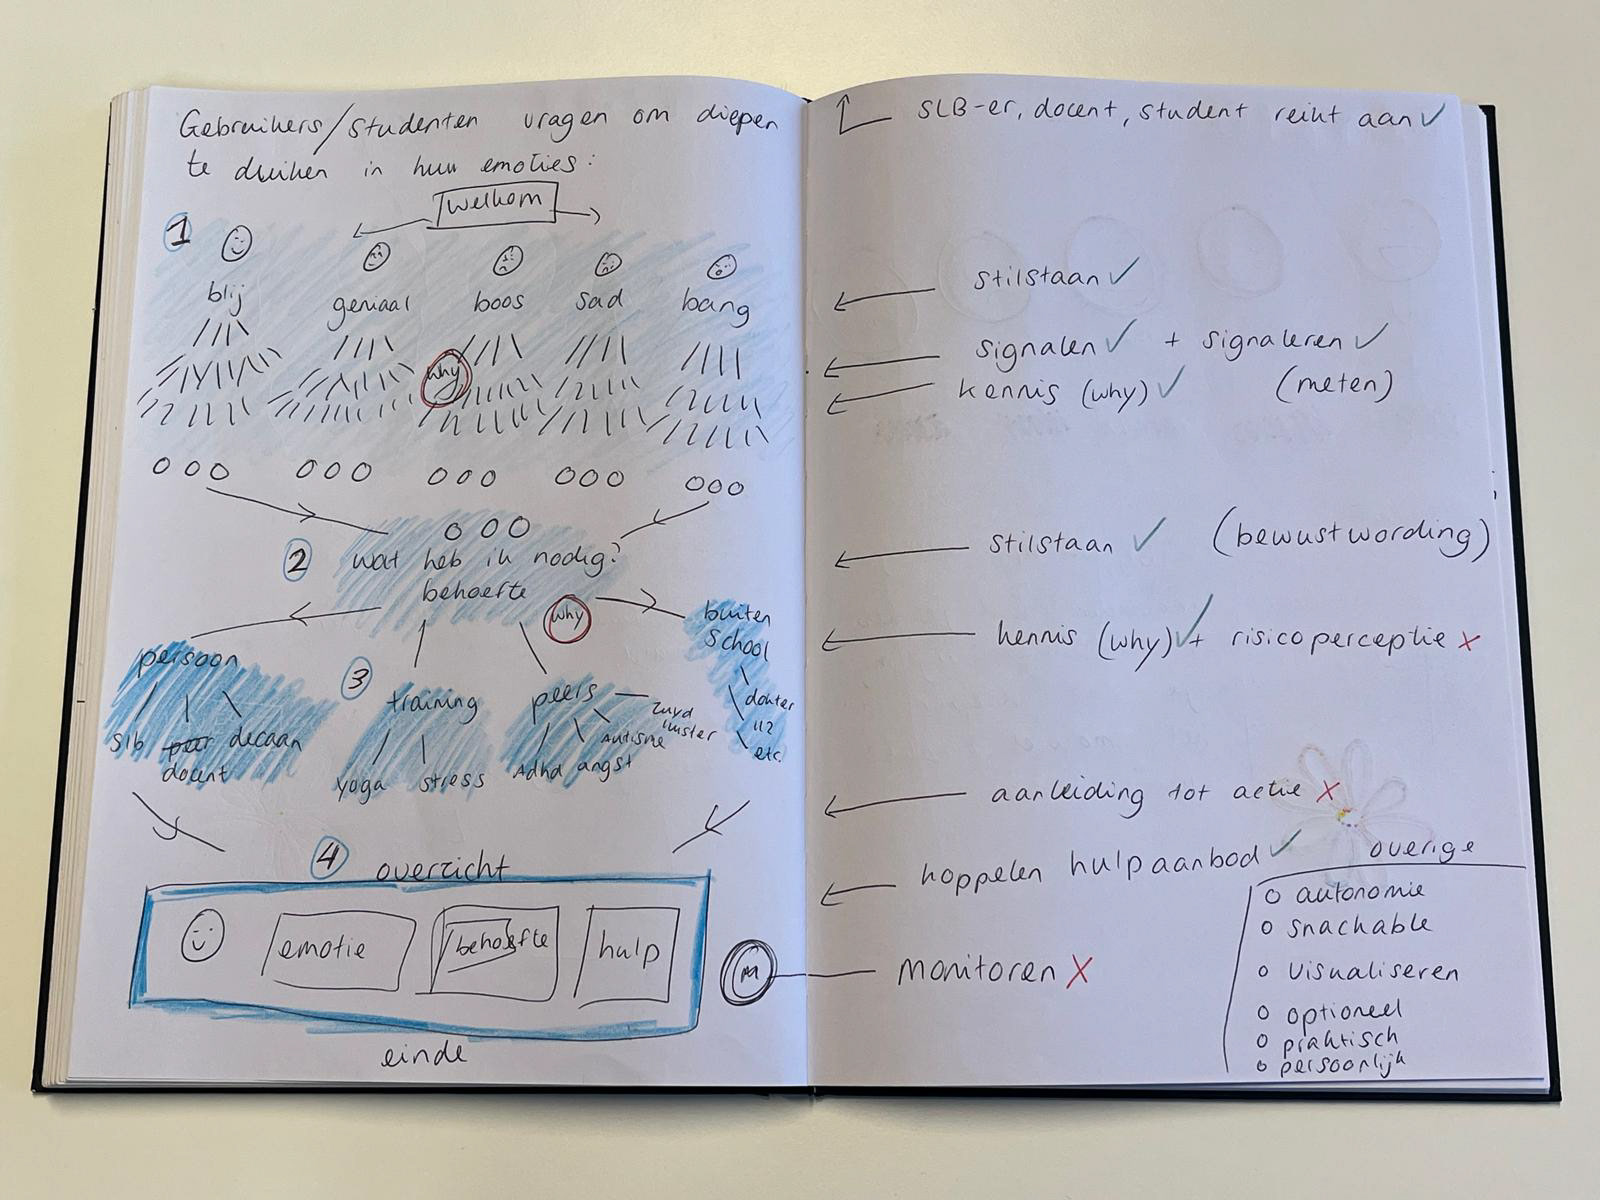 Gebruikers/studenten vragen om dieper
te duiken in hun emoties:
welkom
1
blij
geniaal
boos
sad
bang
why
2
wat heb ik nodig?
behoefte
why
buiten
school
dokter
112
etc.
persoon
slb
peer
decaan
docent
3
training
yoga
stress
peers
Adhd
angst
Autisme
zuyd
luister
4
overzicht
emotie
behoefte
hulp
M
einde
SLB-er, docent, student reikt aan ✓
stilstaan ✓
signalen ✓ + signaleren ✓
kennis (why) ✓ (meten)
stilstaan ✓ (bewustwording)
kennis (why) ✓ + risicoperceptie x
aanleiding tot actie x
koppelen hulpaanbod ✓
monitoren X
overige
o autonomie
o snackable
o visualiseren
o optioneel
o praktisch
o persoonlijk